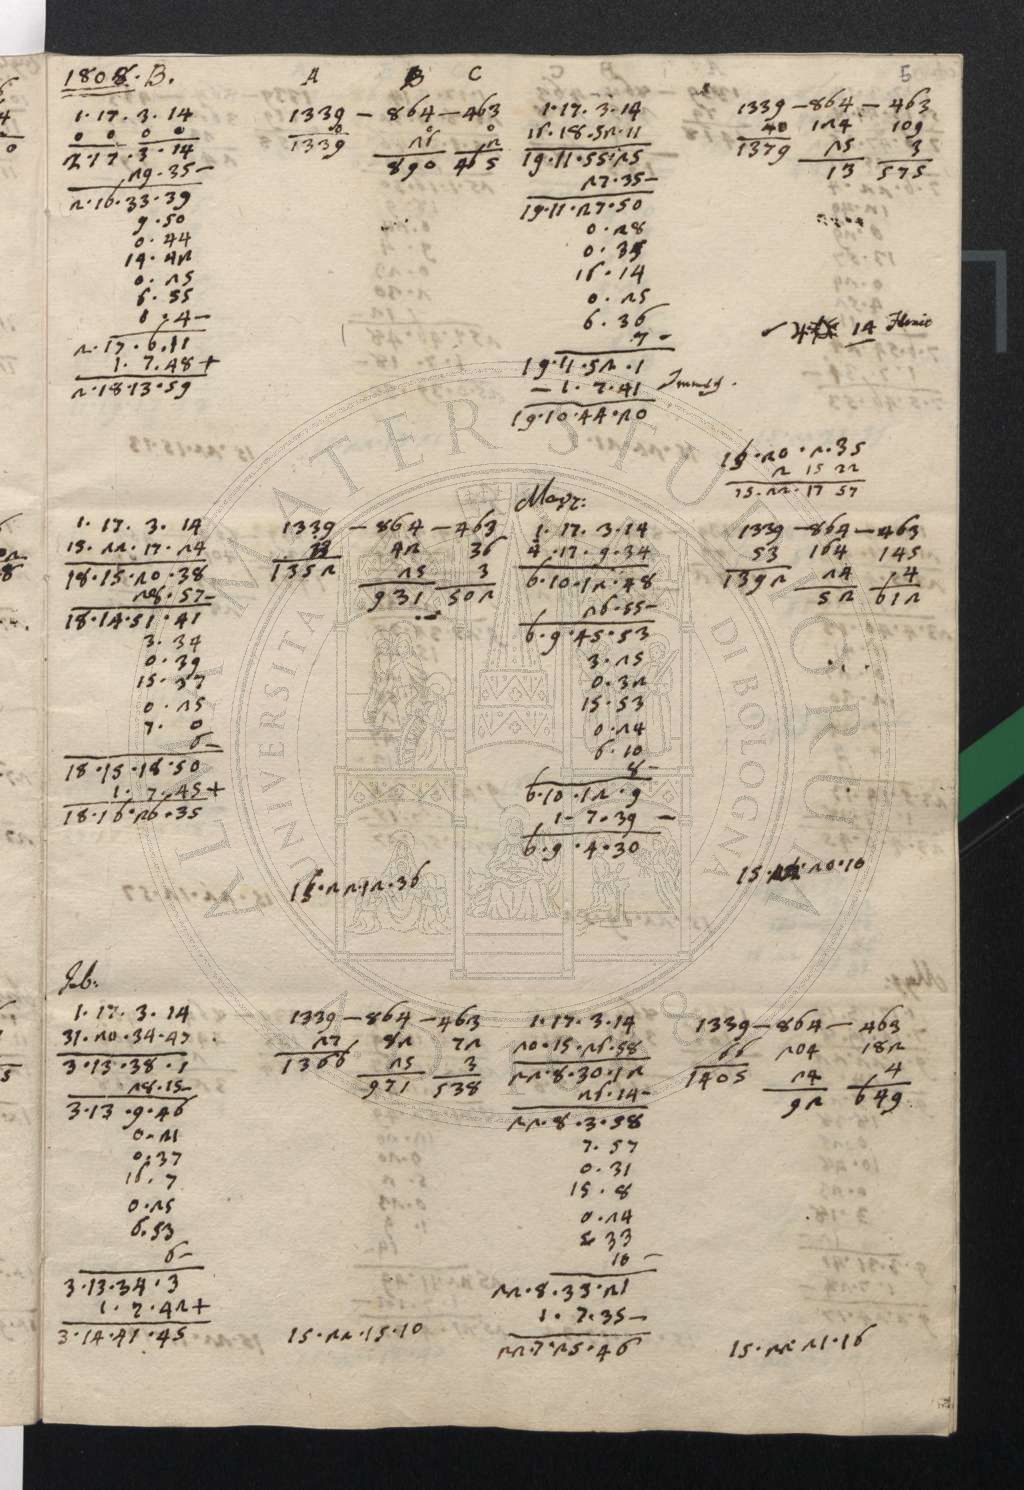 1808. B.
A B C
5
1. 17. 3. 14
0 0 0 0
2 17. 3. 14
29. 35 –
2. 16. 33. 39
9. 50
0. 44
14. 42
0. 25
6. 35
6. 4 –
2. 17. 6. 11
1. 7. 48 +
2. 18. 13. 59
1339 – 864 – 463
0 0 0
1339 26 2
890 465
1. 17. 3. 14
16. 18. 52. 11
19. 11. 55. 25
27. 35 –
19. 11. 27. 50
0. 28
0. 35
16. 14
0. 25
6. 36
7 –
19. 11. 52. 1
– 1. 7. 41
19. 10. 44. 20
1339 – 864 – 463
40 124 109
1379 25 3
13 575
14
20. 2. 35
2 15 22
15. 22. 17 57
1. 17. 3. 14
15. 22. 17. 24
18. 15. 20. 38
28. 57 –
18. 14. 51. 41
3. 34
0. 39
15. 37
0. 25
7. 0
6 –
18. 15. 18. 50
1. 7. 45 +
18. 16. 26. 35
1339 – 864 – 463
13 42 36
1352 25 3
931 502
15. 22. 12. 36
Marz:
1. 17. 3. 14
4. 17. 9. 34
6. 10. 12. 48
26. 55 –
6. 9. 45. 53
3. 25
0. 32
15. 53
0. 24
6. 10
8 –
6. 10. 12. 9
1. 7. 39 –
6. 9. 4. 30
1339 – 864 – 463
53 164 145
1392 24 4
52 612
15. 20. 10
Feb:
1. 17. 3. 14
31. 20. 34. 47
3. 13. 38. 1
28. 15 –
3. 13. 9. 46
0. 21
0. 37
16. 7
0. 25
6. 53
6 –
3. 13. 34. 3
1. 7. 42 +
3. 14. 41. 45
1339 – 864 – 463
27 82 72
1366 25 3
971 538
15. 22. 15. 10
1. 17. 3. 14
20. 15. 26. 58
22. 8. 30. 12
26. 14 –
22. 8. 3. 58
7. 57
0. 31
15. 8
0. 24
5. 33
10 –
22. 8. 33. 21
1. 7. 35 –
22. 7. 25. 46
1339 – 864 – 463
66 204 182
1405 24 4
92 649
15. 22. 21. 16
ALMA MATER STUDIORUM
UNIVERSITA DI BOLOGNA